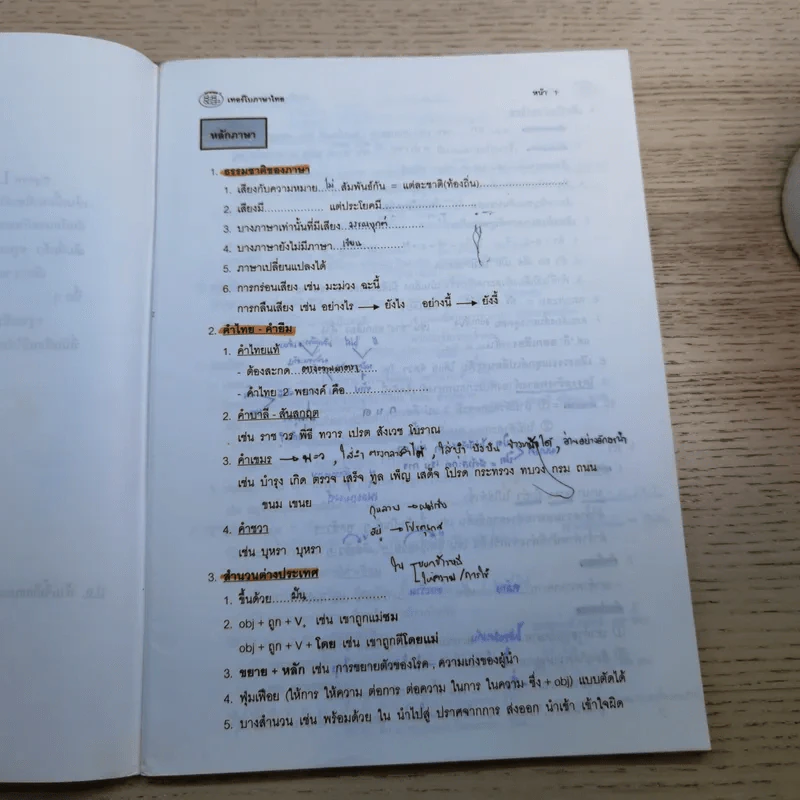 เทอร์โบภาษาไทย หน้า 1
หลักภาษา
1. ธรรมชาติของภาษา
1. เสียงกับความหมาย...ไม่ สัมพันธ์กัน = แต่ละชาติ(ท้องถิ่น)........................
2. เสียงมี................ แต่ประโยคมี........................
3. บางภาษาเท่านั้นที่มีเสียง..วรรณยุกต์..........
4. บางภาษายังไม่มีภาษา...เขียน............
5. ภาษาเปลี่ยนแปลงได้
6. การกร่อนเสียง เช่น มะม่วง ฉะนี้
การกลืนเสียง เช่น อย่างไร → ยังไง อย่างนี้ → ยังงี้
2. คำไทย - คำยืม
1. คำไทยแท้
- ต้องสะกด...ตรงตามมาตรา.....
- คำไทย 2 พยางค์ คือ........................
2. คำบาลี - สันสกฤต
เช่น ราช วร พิธี ทวาร เปรต สังเวช โบราณ
3. คำเขมร
เช่น บำรุง เกิด ตรวจ เสร็จ ทูล เพ็ญ เสด็จ โปรด กระทรวง ทบวง กรม ถนน
ขนม เขนย
4. คำชวา
เช่น บุหรา บุหรา
3. สำนวนต่างประเทศ
1. ขึ้นด้วย.....มัน........................
2. obj + ถูก + V. เช่น เขาถูกแม่ชม
obj + ถูก + V + โดย เช่น เขาถูกตีโดยแม่
3. ขยาย + หลัก เช่น การขยายตัวของโรค, ความเก่งของผู้นำ
4. ฟุ่มเฟือย (ให้การ ให้ความ ต่อการ ต่อความ ในการ ในความ ซึ่ง + obj) แบบตัดได้
5. บางสำนวน เช่น พร้อมด้วย ใน นำไปสู่ ปราศจากการ ส่งออก นำเข้า เข้าใจผิด